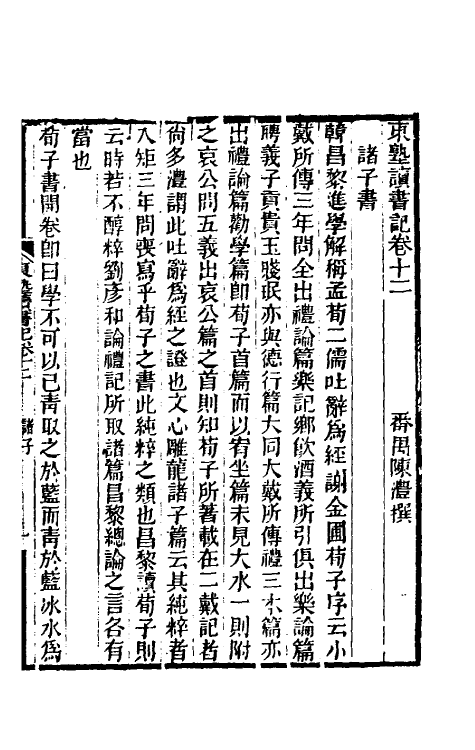 東塾讀書記卷十二
番禺陳澧撰
諸子書
韓昌黎進學解稱孟荀二儒吐辭爲經謝金圃荀子序云小
戴所傳三年問全出禮論篇樂記鄉飲酒義所引俱出樂論篇
聘義子貢貴玉賤珉亦與德行篇大同大戴所傳禮三本篇亦
出禮論篇勸學篇卽荀子首篇而以宥坐篇末見大水一則附
之哀公問五義出哀公篇之首則知荀子所著載在二戴記者
尙多澧謂此吐辭爲經之證也文心雕龍諸子篇云其純粹者
入矩三年問喪寫乎荀子之書此純粹之類也昌黎讀荀子則
云時若不醇粹劉彥和論禮記所取諸篇昌黎總論之言各有
當也
荀子書開卷卽曰學不可以已靑取之於藍而靑於藍冰水爲
東塾讀書記卷十二
諸子